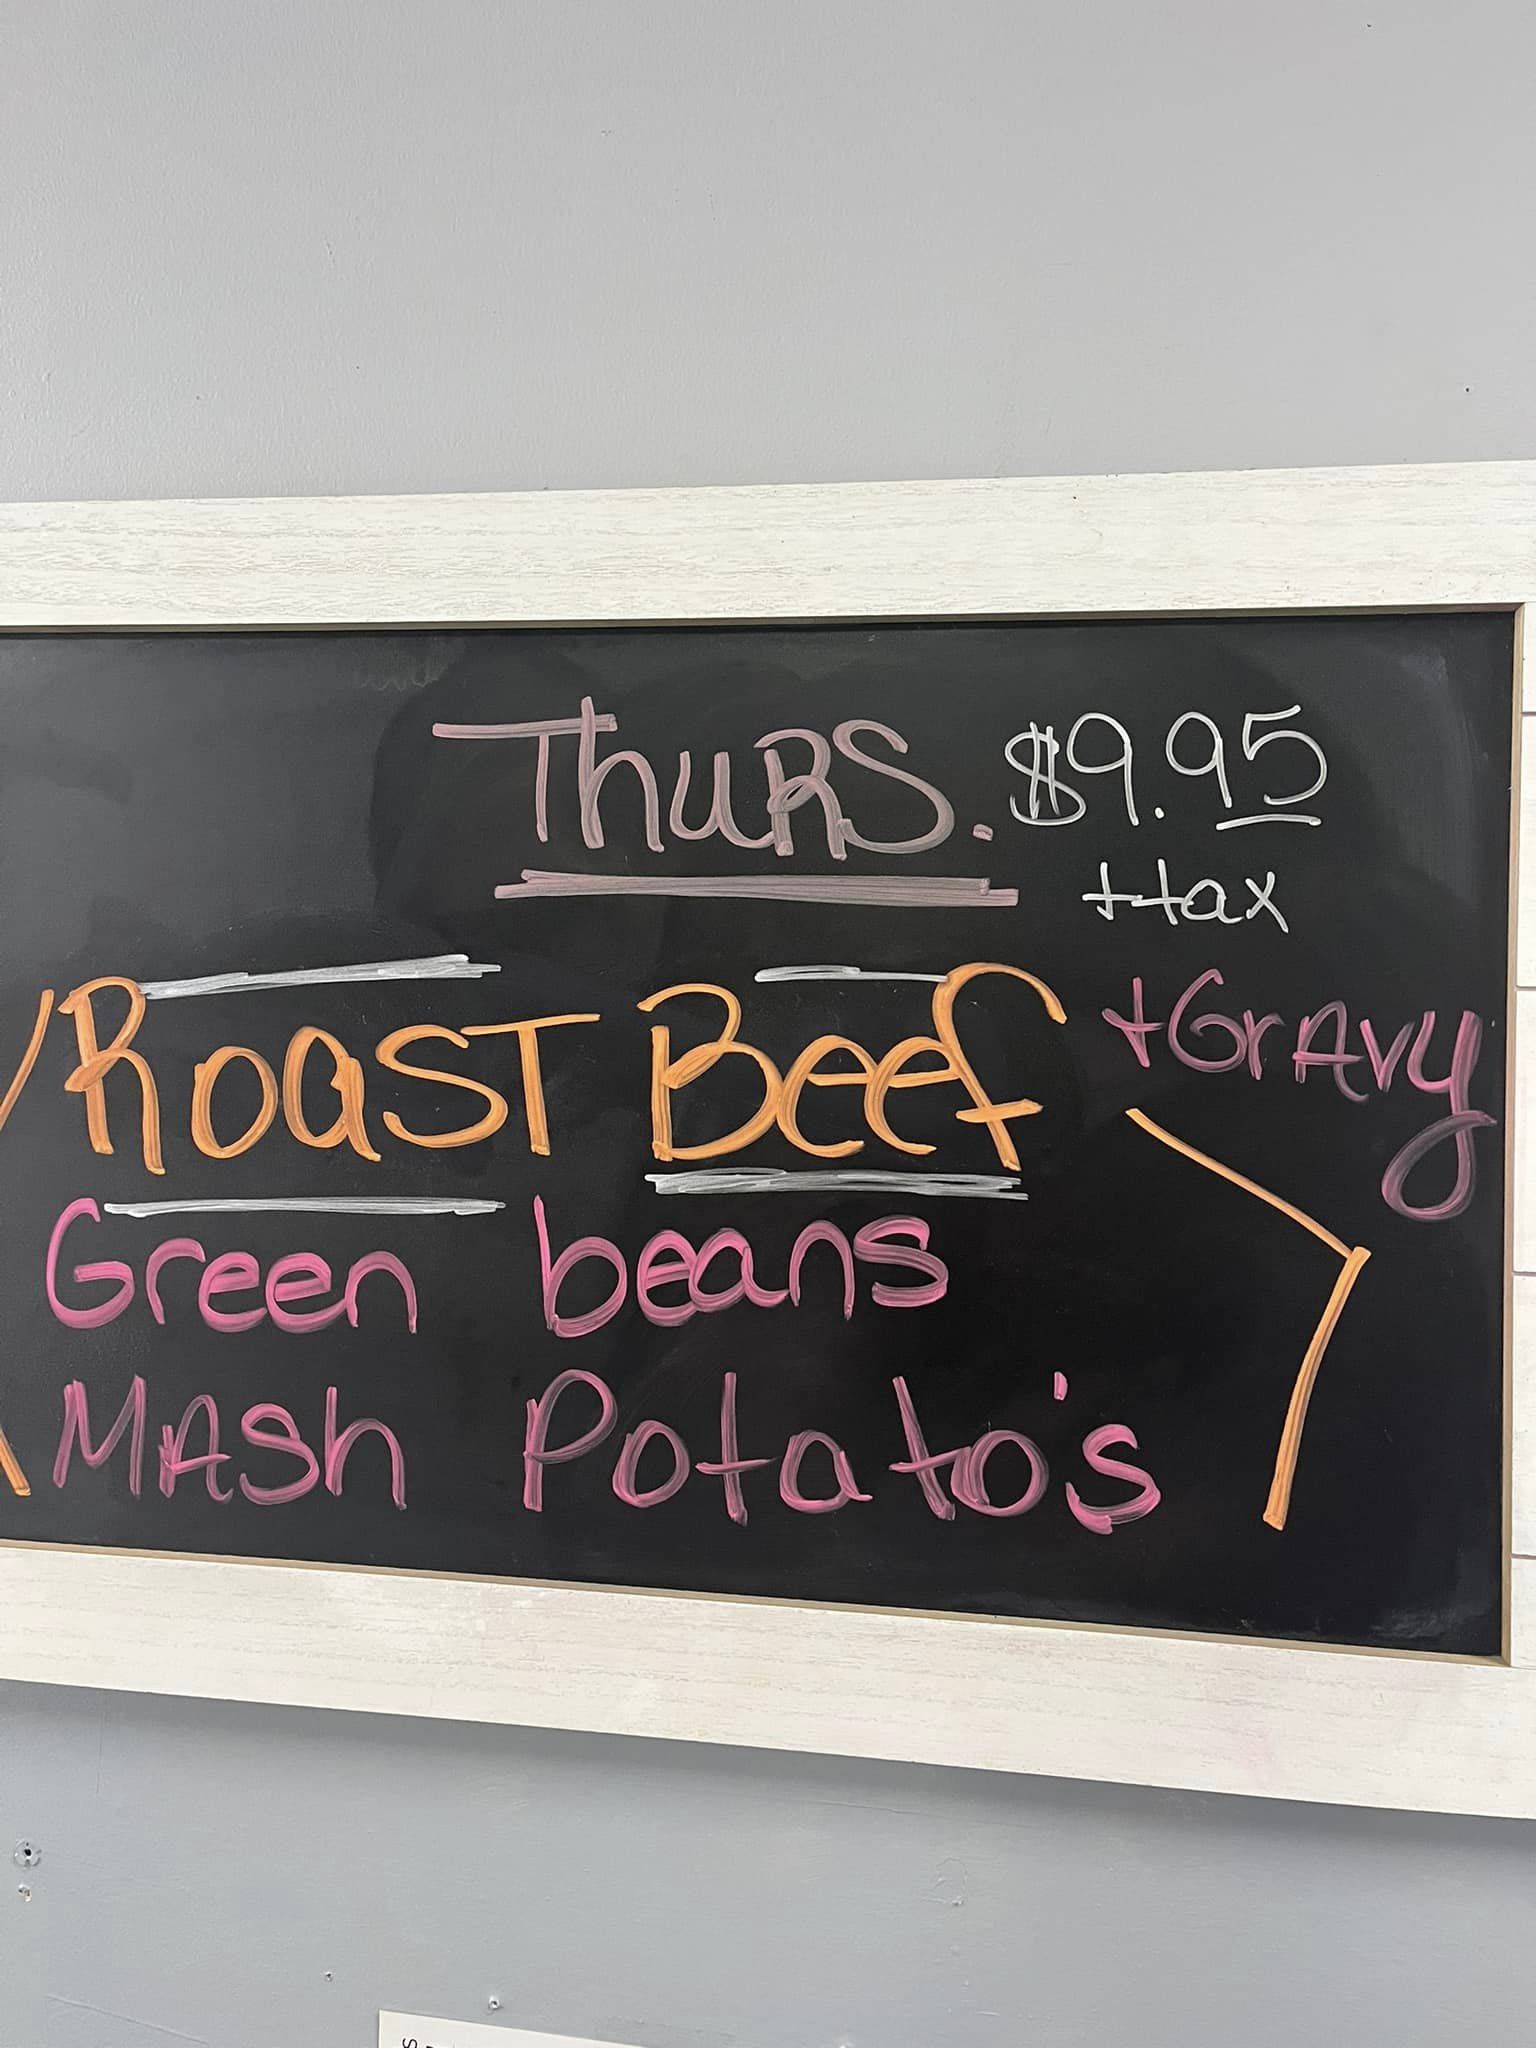 Thurs. $9.95
+tax
Roast Beef +Gravy
Green beans
Mash Potato's